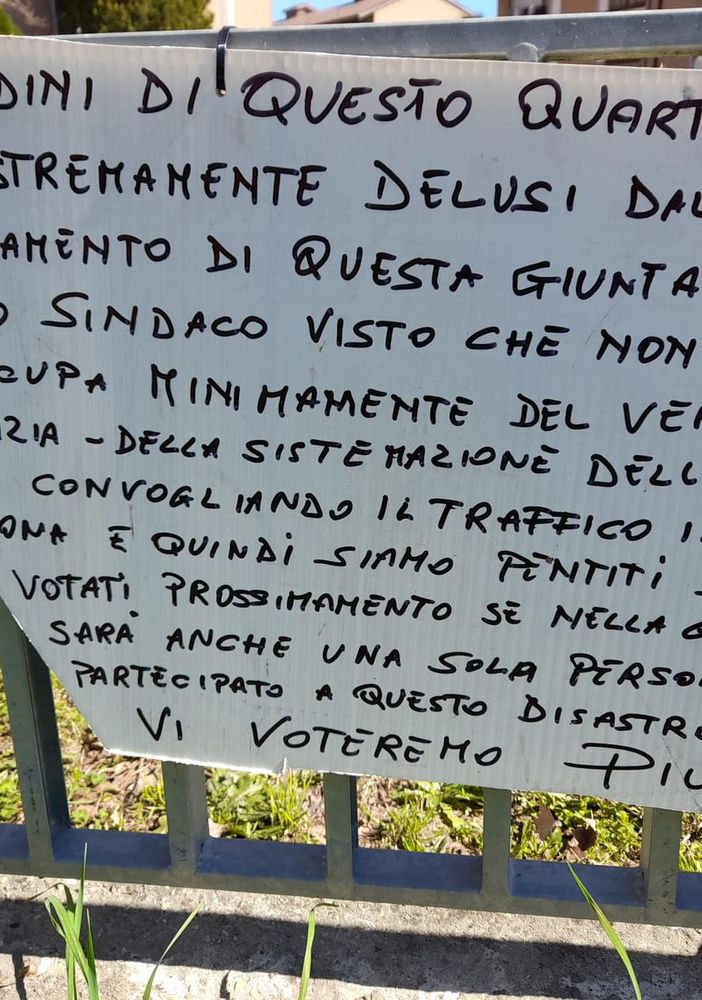 DINI DI QUESTO QUART
STREMAMENTE DELUSI DAL
AMENTO DI QUESTA GIUNTA
O SINDACO VISTO CHE NON
CUPA MINIMAMENTE DEL VER
IZIA - DELLA SISTEMAZIONE DELL
CONVOGLIANDO IL TRAFFICO I
ONA E QUINDI SIAMO PENTITI
VOTATI. PROSSIMAMENTO SE NELLA G
SARÀ ANCHE UNA SOLA PERSO
PARTECIPATO A QUESTO DISASTR
VI VOTEREMO PIU